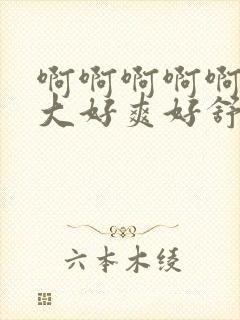 啊啊啊啊啊
大好爽好舒
六本木绫